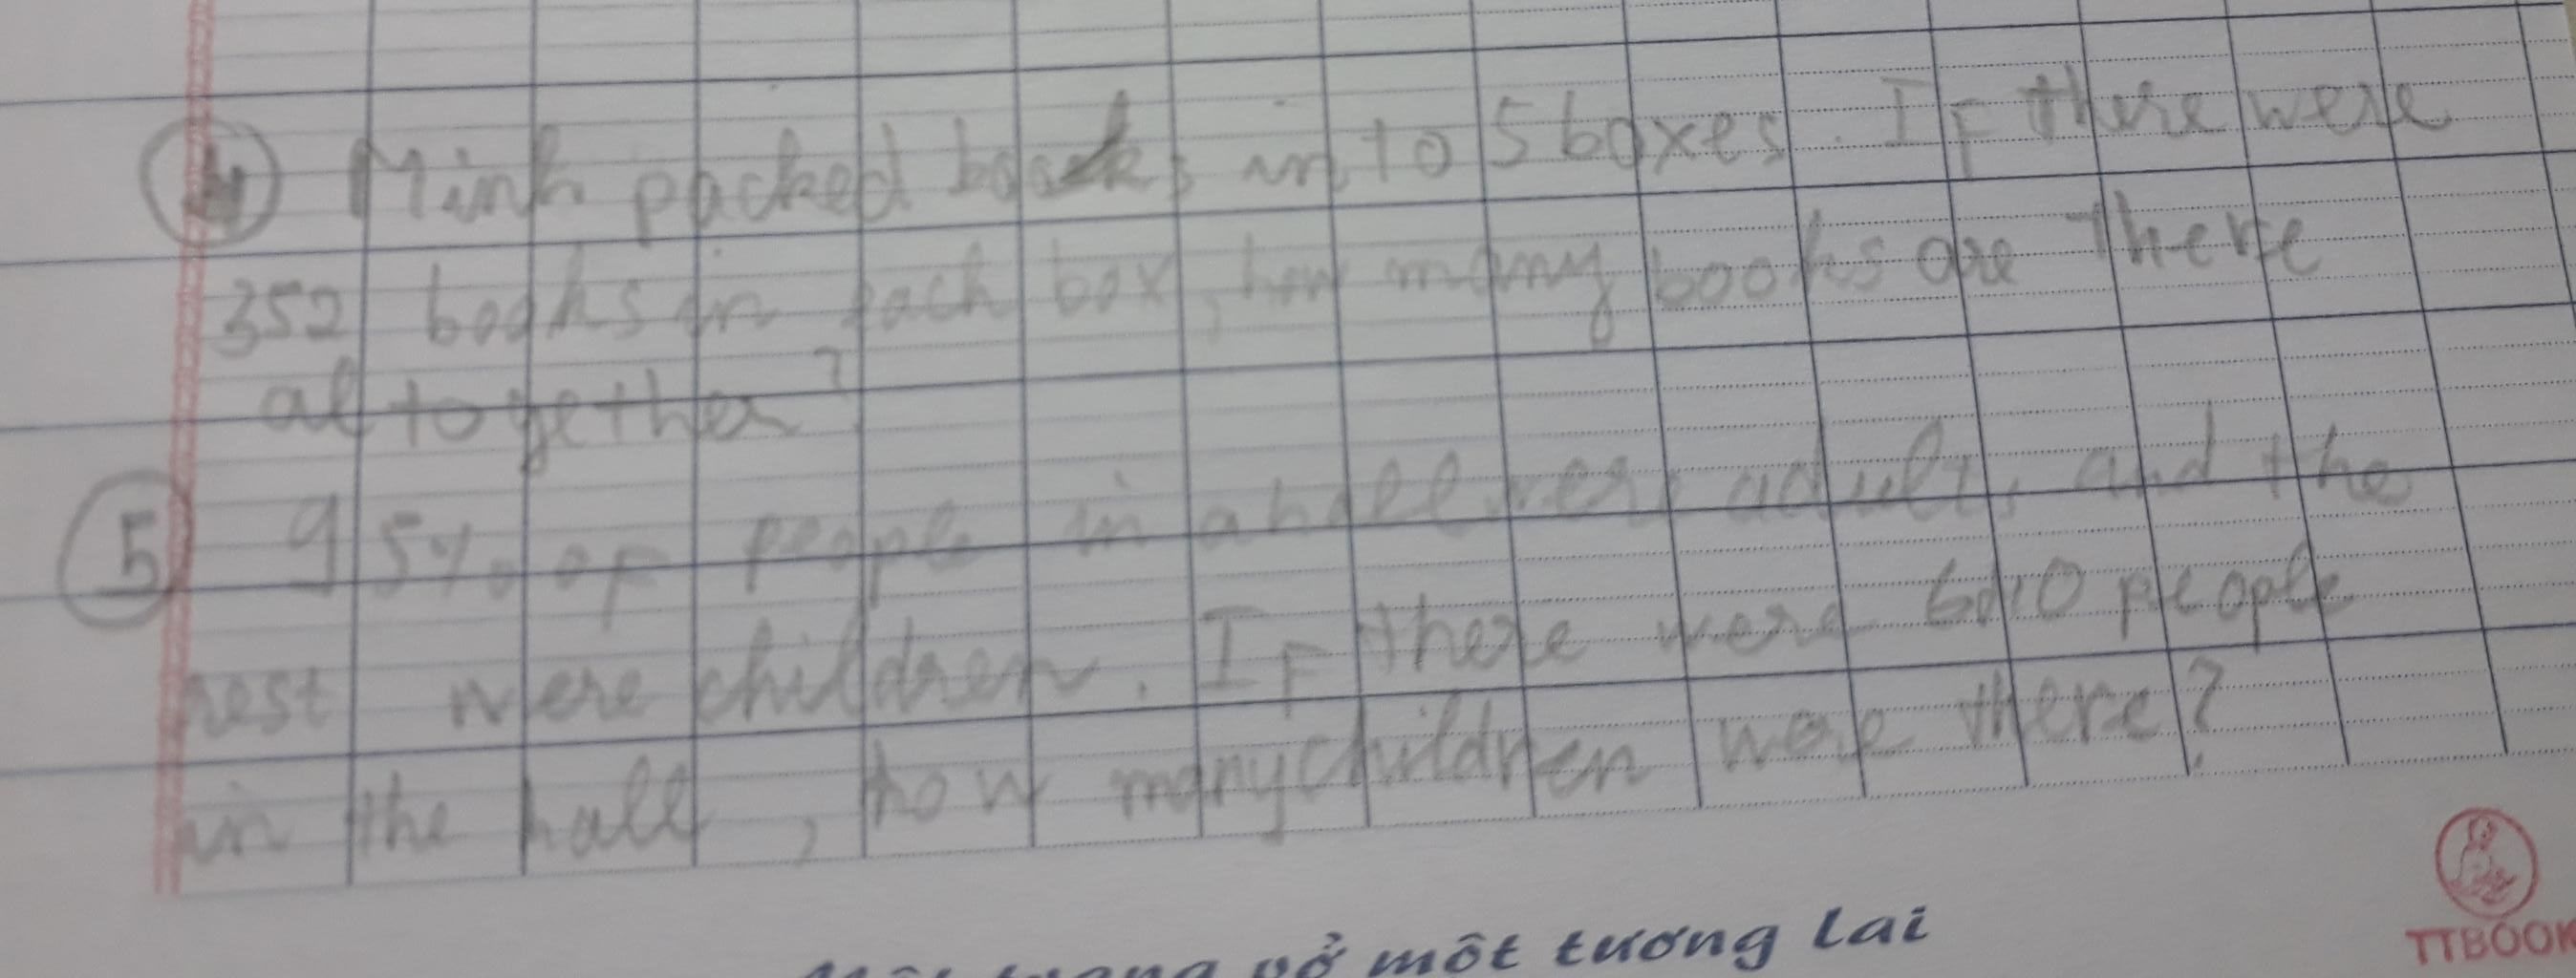 4 Minh packed books into 5 boxes. IF there were
352 books in each box, how many books are there
altogether?
5 95% OF people in a hall were adults and the
rest were children. IF there were people
in the hall, how many children were there?
một tương lai
TTBOOK